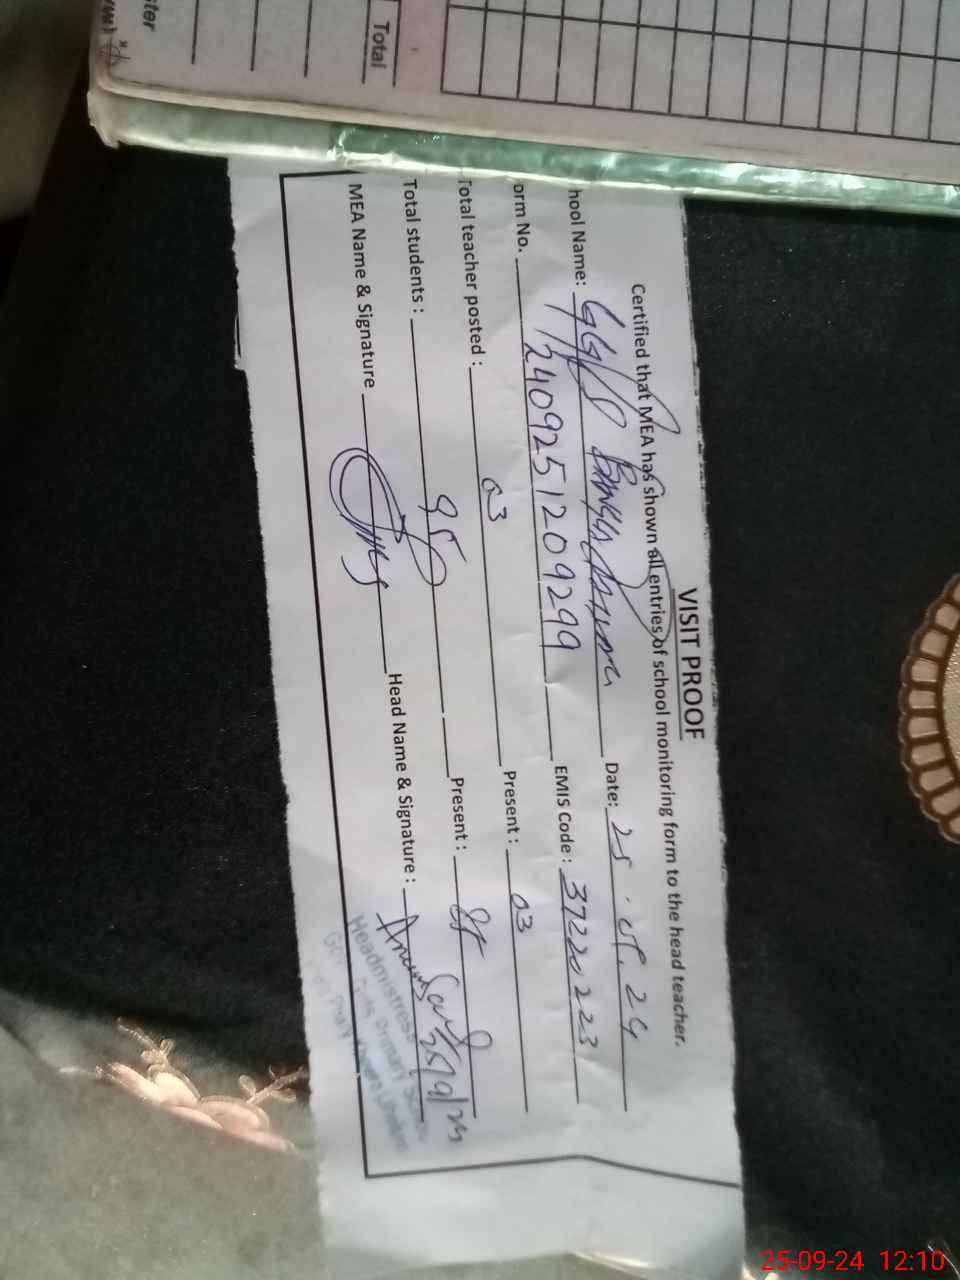 ster
Total
VISIT PROOF
Certified that MEA has shown all entries of school monitoring form to the head teacher.
hool Name: GGPS Date: 25.09.24
orm No. 2409251209299 EMIS Code: 37220223
Total teacher posted: 03 Present: 03
Total students: 95 Present: 88
MEA Name & Signature Head Name & Signature:
Headmistress
Govt. Girls Primary School
25-09-24 12:10